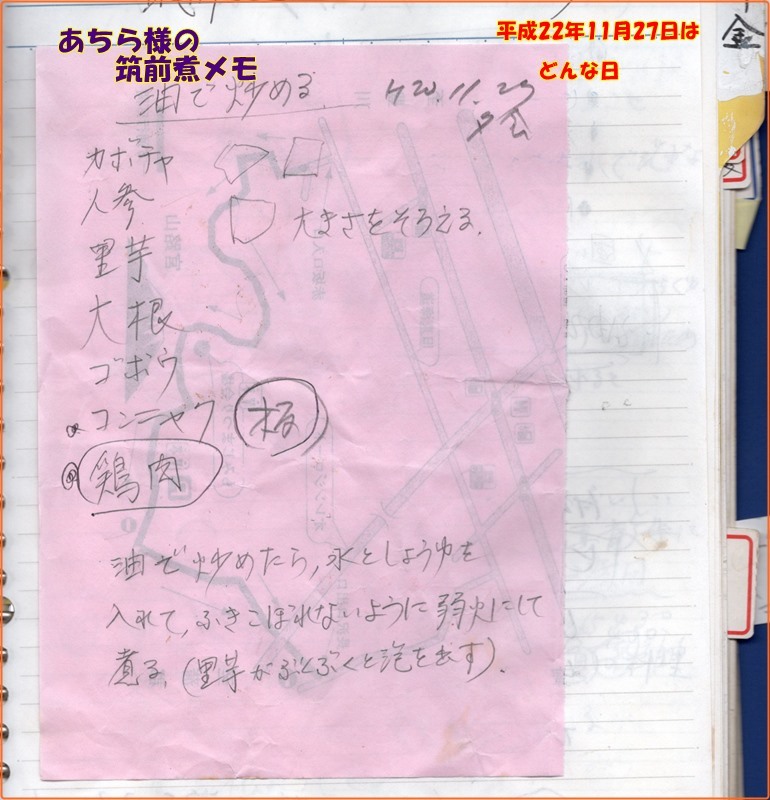 あちら様の
筑前煮メモ
平成22年11月27日は
どんな日
金
油で炒める
H20.11.29
カボチャ
人参
大きさをそろえる.
里芋
大根
ゴボウ
コンニャク 板
鶏肉
油で炒めたら,水としょうゆを
入れて,ふきこぼれないように弱火にして
煮る.(里芋がぶくぶくと泡を出す).